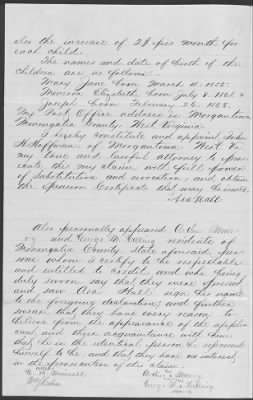 also the increase of 2$ per month for
each child.
The names and date of birth of the
children are as follows:-
Mary Jane born March 11, 1855-
Minerva Elizabeth born July 8. 1861 &
Joseph born February 26. 1868.
My Post Office address is Morgantown,
Monongalia County, West Virginia
I hereby constitute and appoint, John
H. Hoffman of Morgantown West Va
my true and lawful attorney to prose-
cute the my claim, with full power
of substitution and revocation, and obtain
the pension Certificate that may be issued.
Asa Hall
Also personally appeared
and George W. residents of
Monongalia County, State aforesaid per-
sons whom I certify to be respectable
and entitled to credit and who being
duly sworn say that they were present
and saw Asa Hall, sign his name
to the foregoing declaration; and further
swear that they have every reason to
believe from the appearance of the appli-
cant and their acquaintance with him
that he is the identical person he represents
himself to be and that they have no interest,
in the prosecution of this claim.
his
mark